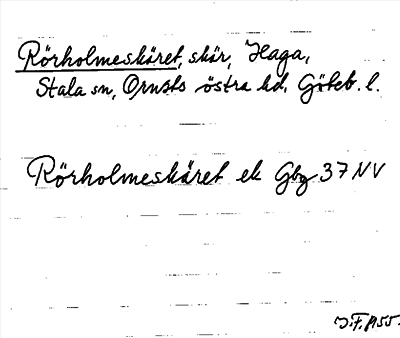 Rörholmeskäret, skär, Haga,
Stala sn, Orusts östra hd. Göteb. l.
Rörholmeskäret ek Gbg 37 NV
J.F. 1955.